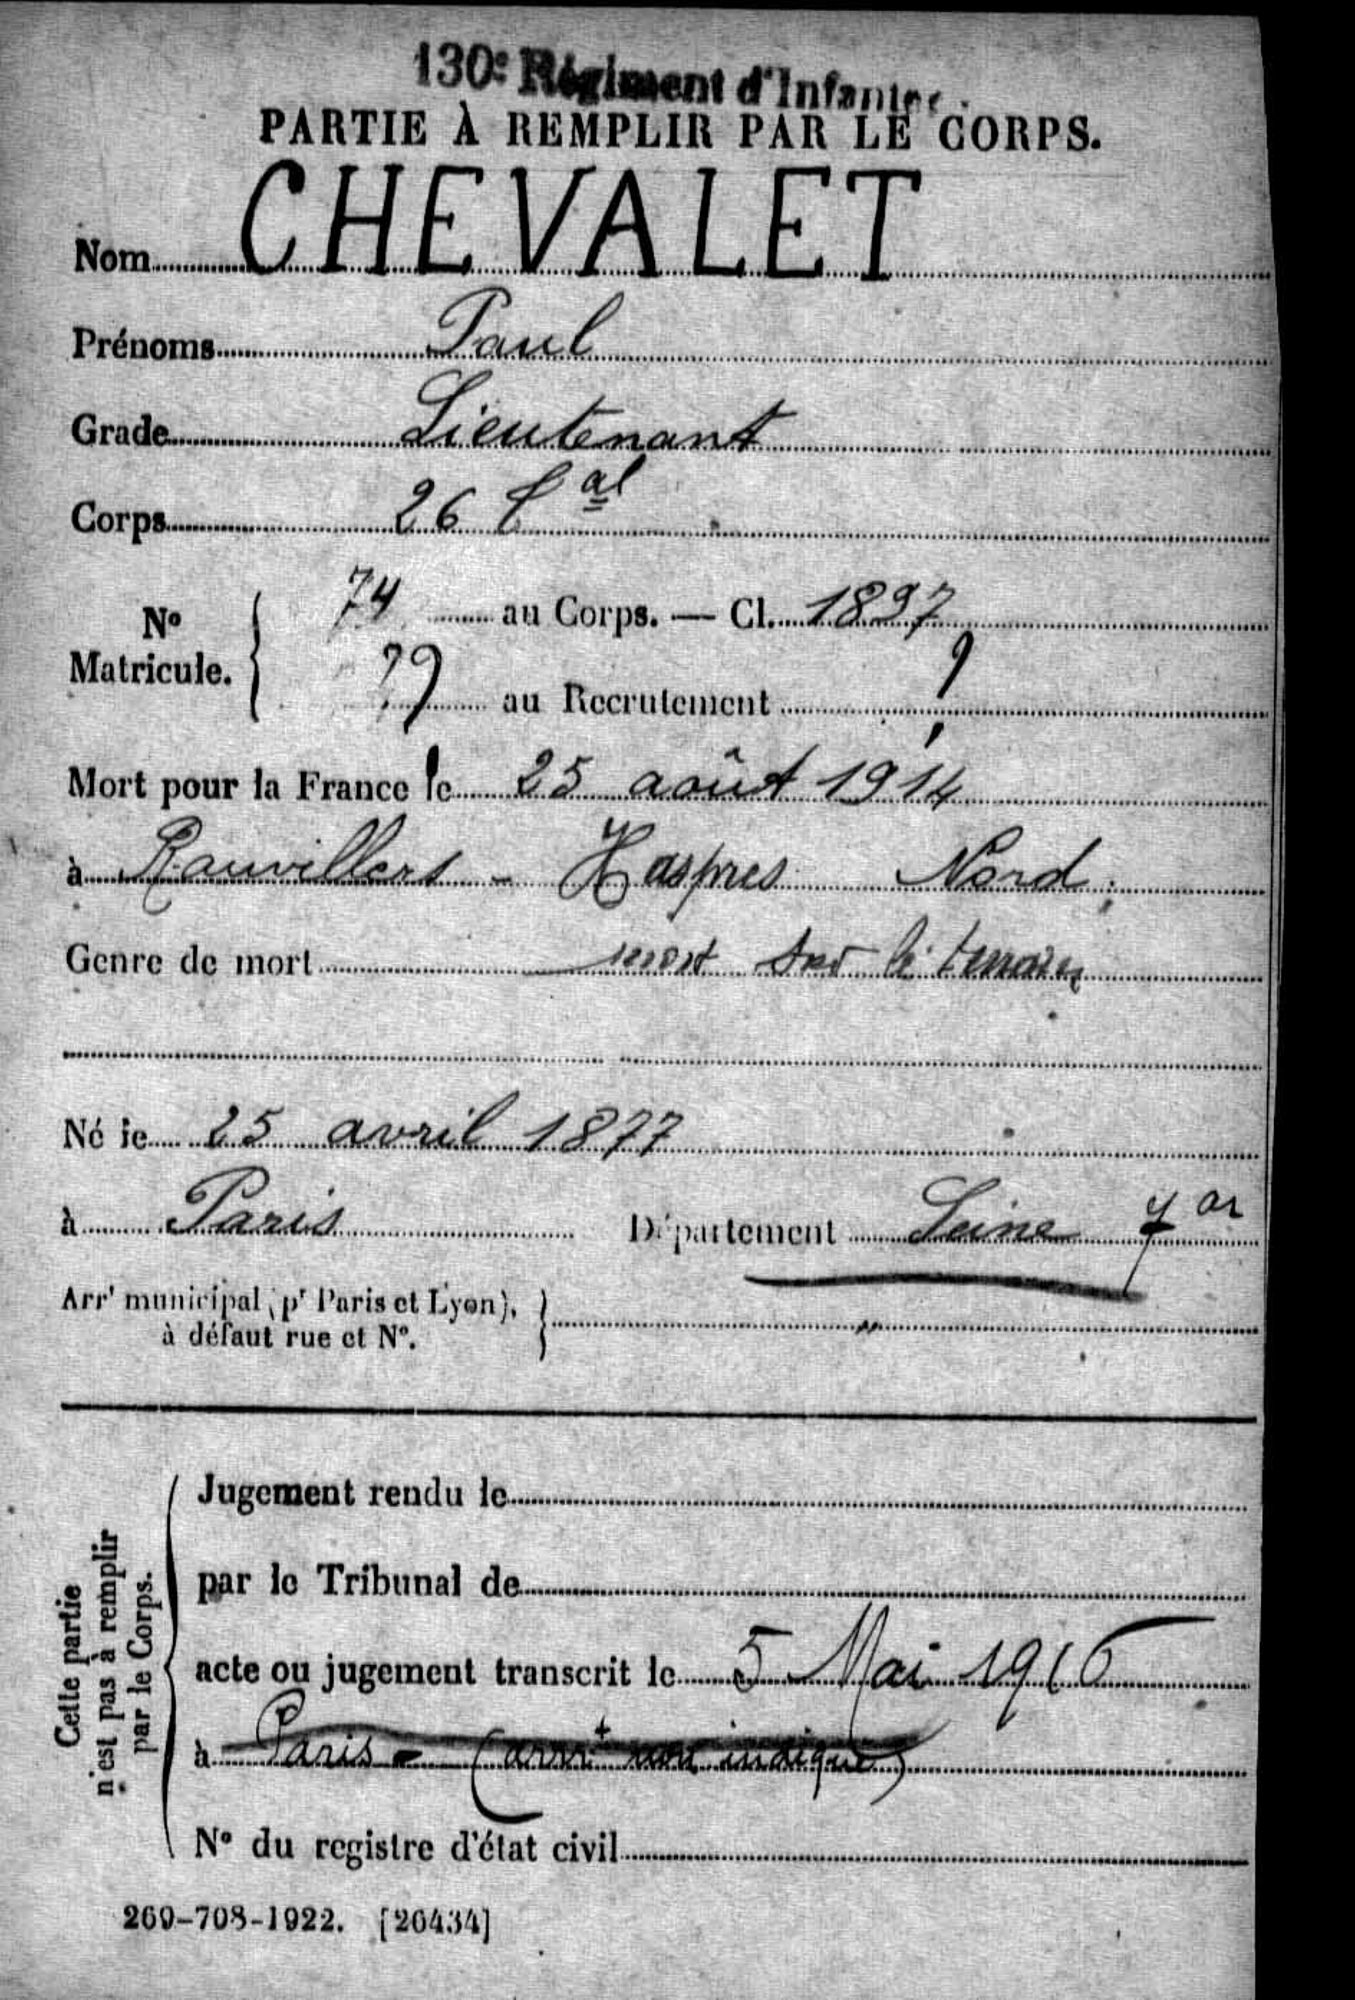 130e Régiment d'Infanterie
PARTIE À REMPLIR PAR LE CORPS.
Nom CHEVALET
Prénoms Paul
Grade Lieutenant
Corps 26 tal
No Matricule. { 74 au Corps. — Cl. 1897
?? au Recrutement ?
Mort pour la France le 25 août 1914
à Rauvillers - Haspres Nord
Genre de mort mort sur le terrain
Né le 25 avril 1877
à Paris Département Seine 7 ar
Arrt municipal (pr Paris et Lyon), à défaut rue et No. } "
Cette partie n'est pas à remplir par le Corps.
Jugement rendu le
par le Tribunal de
acte ou jugement transcrit le 5 Mai 1916
à Paris - (arrt non indiqué)
No du registre d'état civil
269-708-1922. [26434]